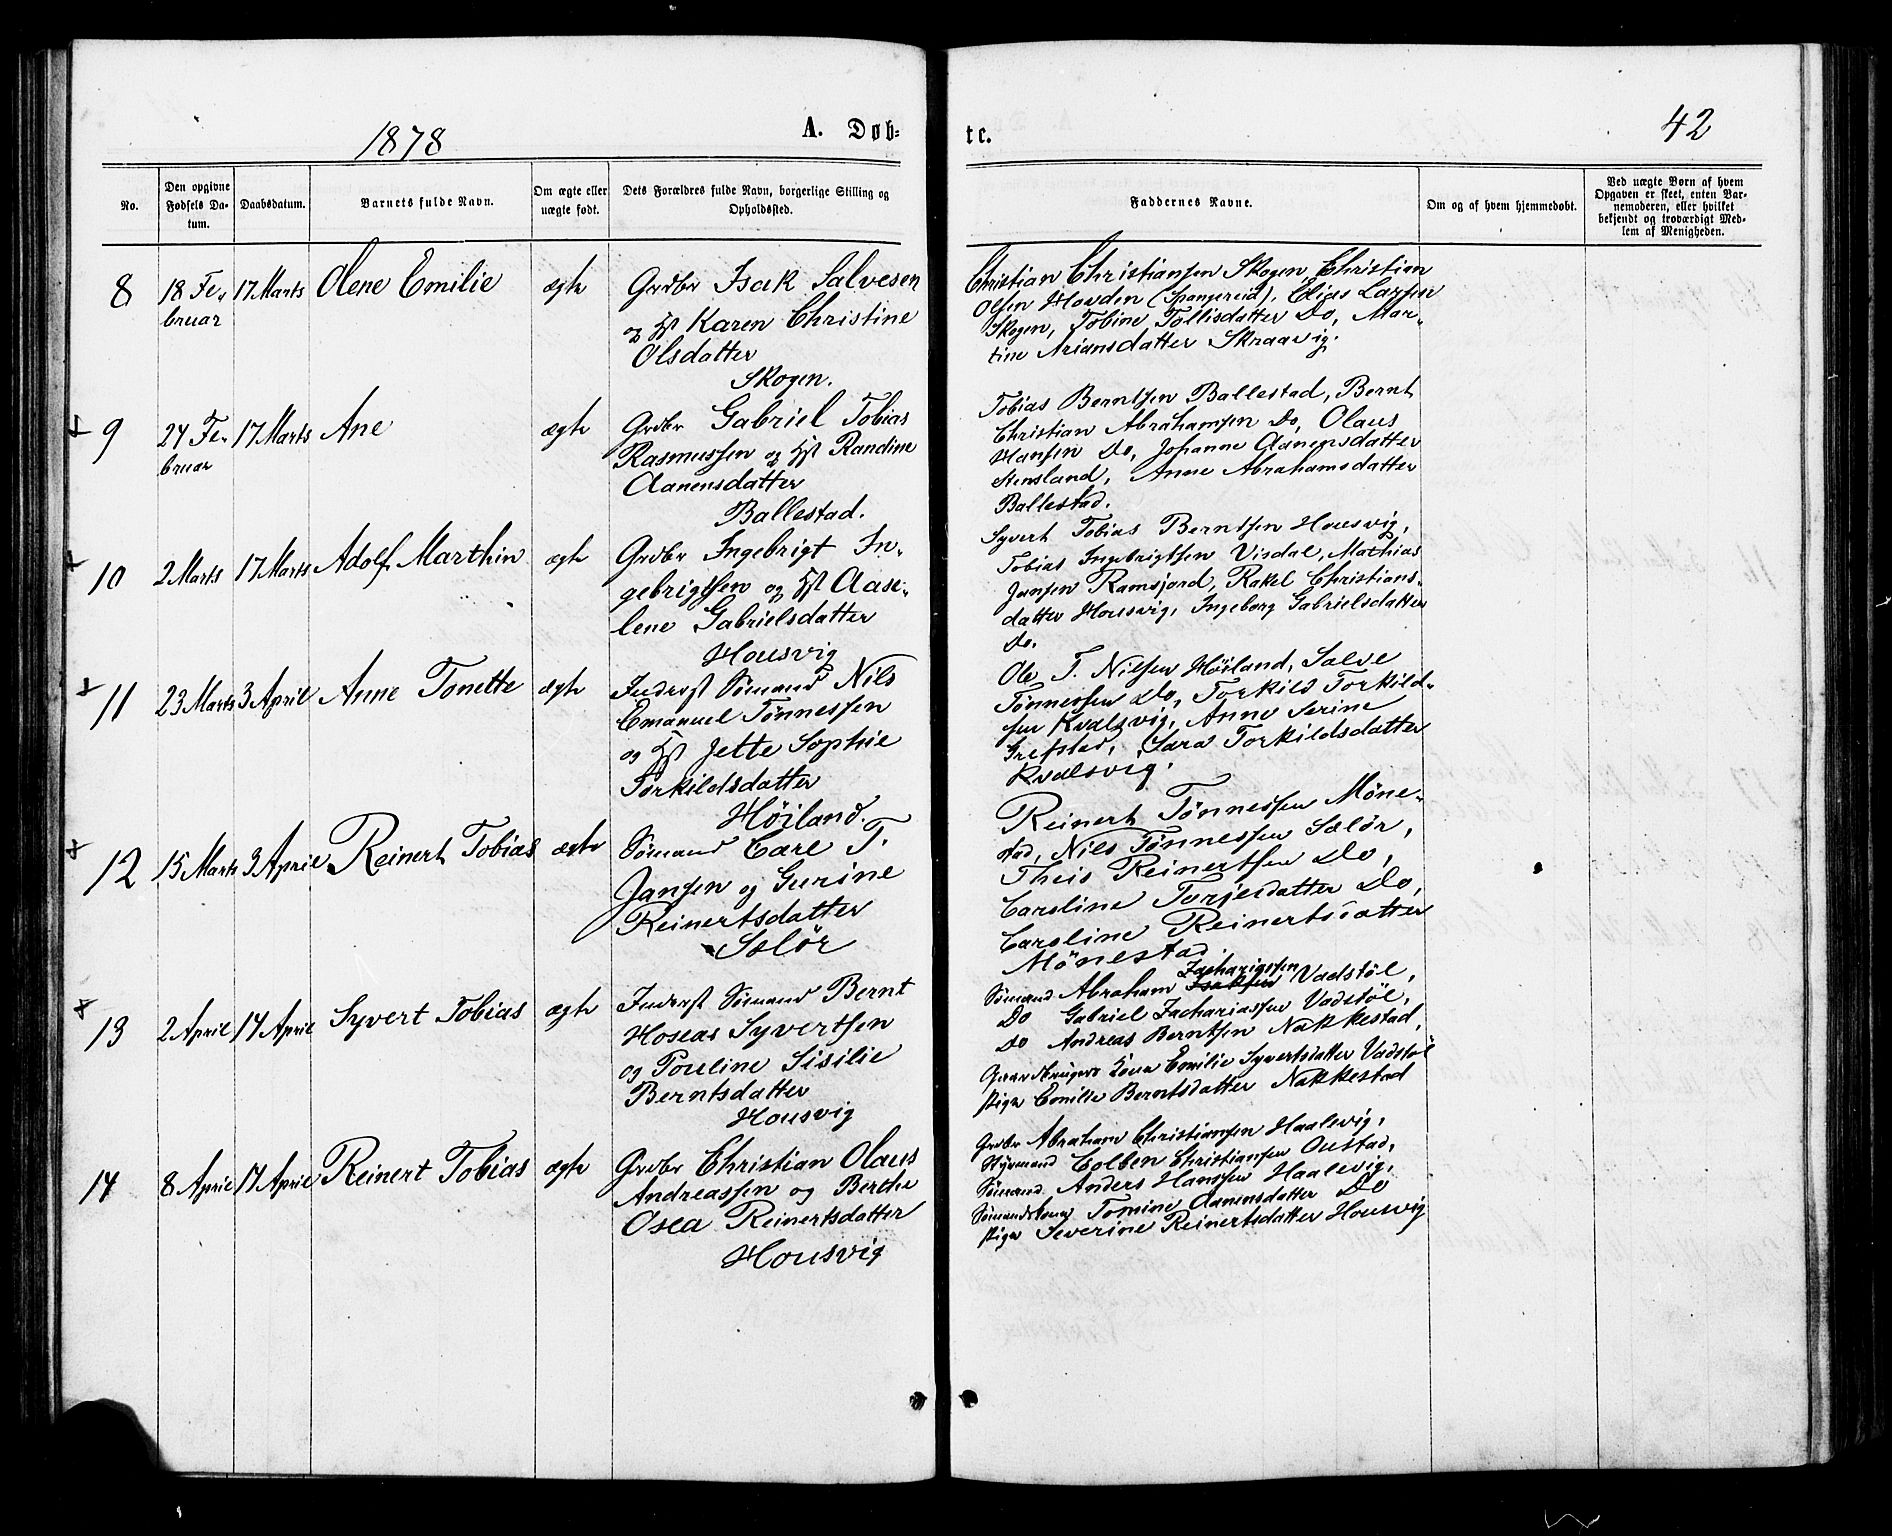 1878
A. Døb-
te.
42
No.
Den opgivne
Fødsels Da-
tum.
Daabsdatum.
Barnets fulde Navn.
Om ægte eller
uægte født.
Dets Forældres fulde Navn, borgerlige Stilling og
Opholdssted.
Faddernes Navne.
Om og af hvem hjemmedøbt.
Ved uægte Børn af hvem
Opgaven er skeet, enten Bar-
nemoderen, eller hvilket
bekjendt og troværdigt Med-
lem af Menigheden.
8
18 Fe-
bruar
17 Marts
Olene Emilie
ægte
Grdbr Isak Salvesen
og Hst Karen Christine
Olsdatter
Skogen.
Christian Christiansen Skogen, Christian
Olsen Hovden (Spangereid), Elias Larsen
Skogen, Tobine Tollisdatter Do, Mar-
tine Ariansdatter Skraavig.
9
24 Fe-
bruar
17 Marts
Ane
ægte
Grdbr Gabriel Tobias
Rasmussen og Hst Randine
Aanensdatter
Ballestad.
Tobias Berntsen Ballestad, Bernt
Christian Abrahamsen Do, Olaus
Hansen Do, Johanne Aanensdatter
Stensland, Anne Abrahamsdatter
Ballestad.
10
2 Marts
17 Marts
Adolf Marthin
ægte
Grdbr Ingebrigt In-
gebrigtsen og Hst Aase-
lene Gabrielsdatter
Housvig
Syvert Tobias Berntsen Housvig,
Tobias Ingebrigtsen Visdal, Mathias
Jansen Ramsjord, Rakel Christians-
datter Housvig, Ingeborg Gabrielsdatter
Do.
11
23 Marts
3 April
Anne Tonette
ægte
Inderst Sømand Nils
Emanuel Tønnessen
og Hst Jette Sophie
Torkildsdatter
Høiland.
Ole T. Nilsen Høiland, Salve
Tønnessen Do, Torkild Torkild-
sen Kvalsvig, Anne Serine
Grefstad, Sara Torkildsdatter
Kvalsvig.
12
15 Marts
3 April
Reinert Tobias
ægte
Sømand Carl T.
Jansen og Gurine
Reinertsdatter
Selør
Reinert Tønnessen Møne-
stad, Nils Tønnessen Selør,
Theis Reinertsen Do,
Caroline Torjesdatter Do,
Caroline Reinertsdatter
Mønestad.
13
2 April
14 April
Syvert Tobias
ægte
Inderst Sømand Bernt
Hoseas Syvertsen
og Pouline Sisilie
Berntsdatter
Housvig
Zachariassen
Sømand Abraham Isaksen Vadstøl,
Do Gabriel Zachariassen Vadstøl,
Do Andreas Berntsen Nakkestad,
Gaardbrugers Kone Emilie Syvertsdatter Vadstøl
Pige Emilie Berntsdatter Nakkestad
14
8 April
17 April
Reinert Tobias
ægte
Grdbr Christian Olaus
Andreassen og Berthe
Osea Reinertsdatter
Housvig
Grdbr Abraham Christiansen Haalevig,
Styrmand Colben Christiansen Oustad,
Sømand Anders Hanssen Haalevig,
Sømandskone Tomine Aanensdatter Do
Pige Severine Reinertsdatter Housvig